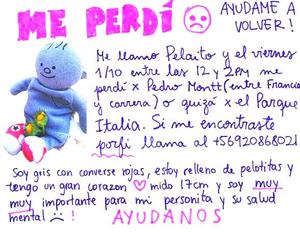 ME PERDÍ
AYUDAME A
VOLVER!
Me llamo Pelaito y el viernes
1/10 entre las 12 y 2PM me
perdí x Pedro Montt (entre Francia
y carrera) o quizá x el Parque
Italia. Si me encontraste
porfi llama al +56920868021
Soy gris con converse rojas, estoy relleno de pelotitas y
tengo un gran corazon mido 17cm y soy muy
muy importante para mi personita y su salud
mental !
AYUDANOS